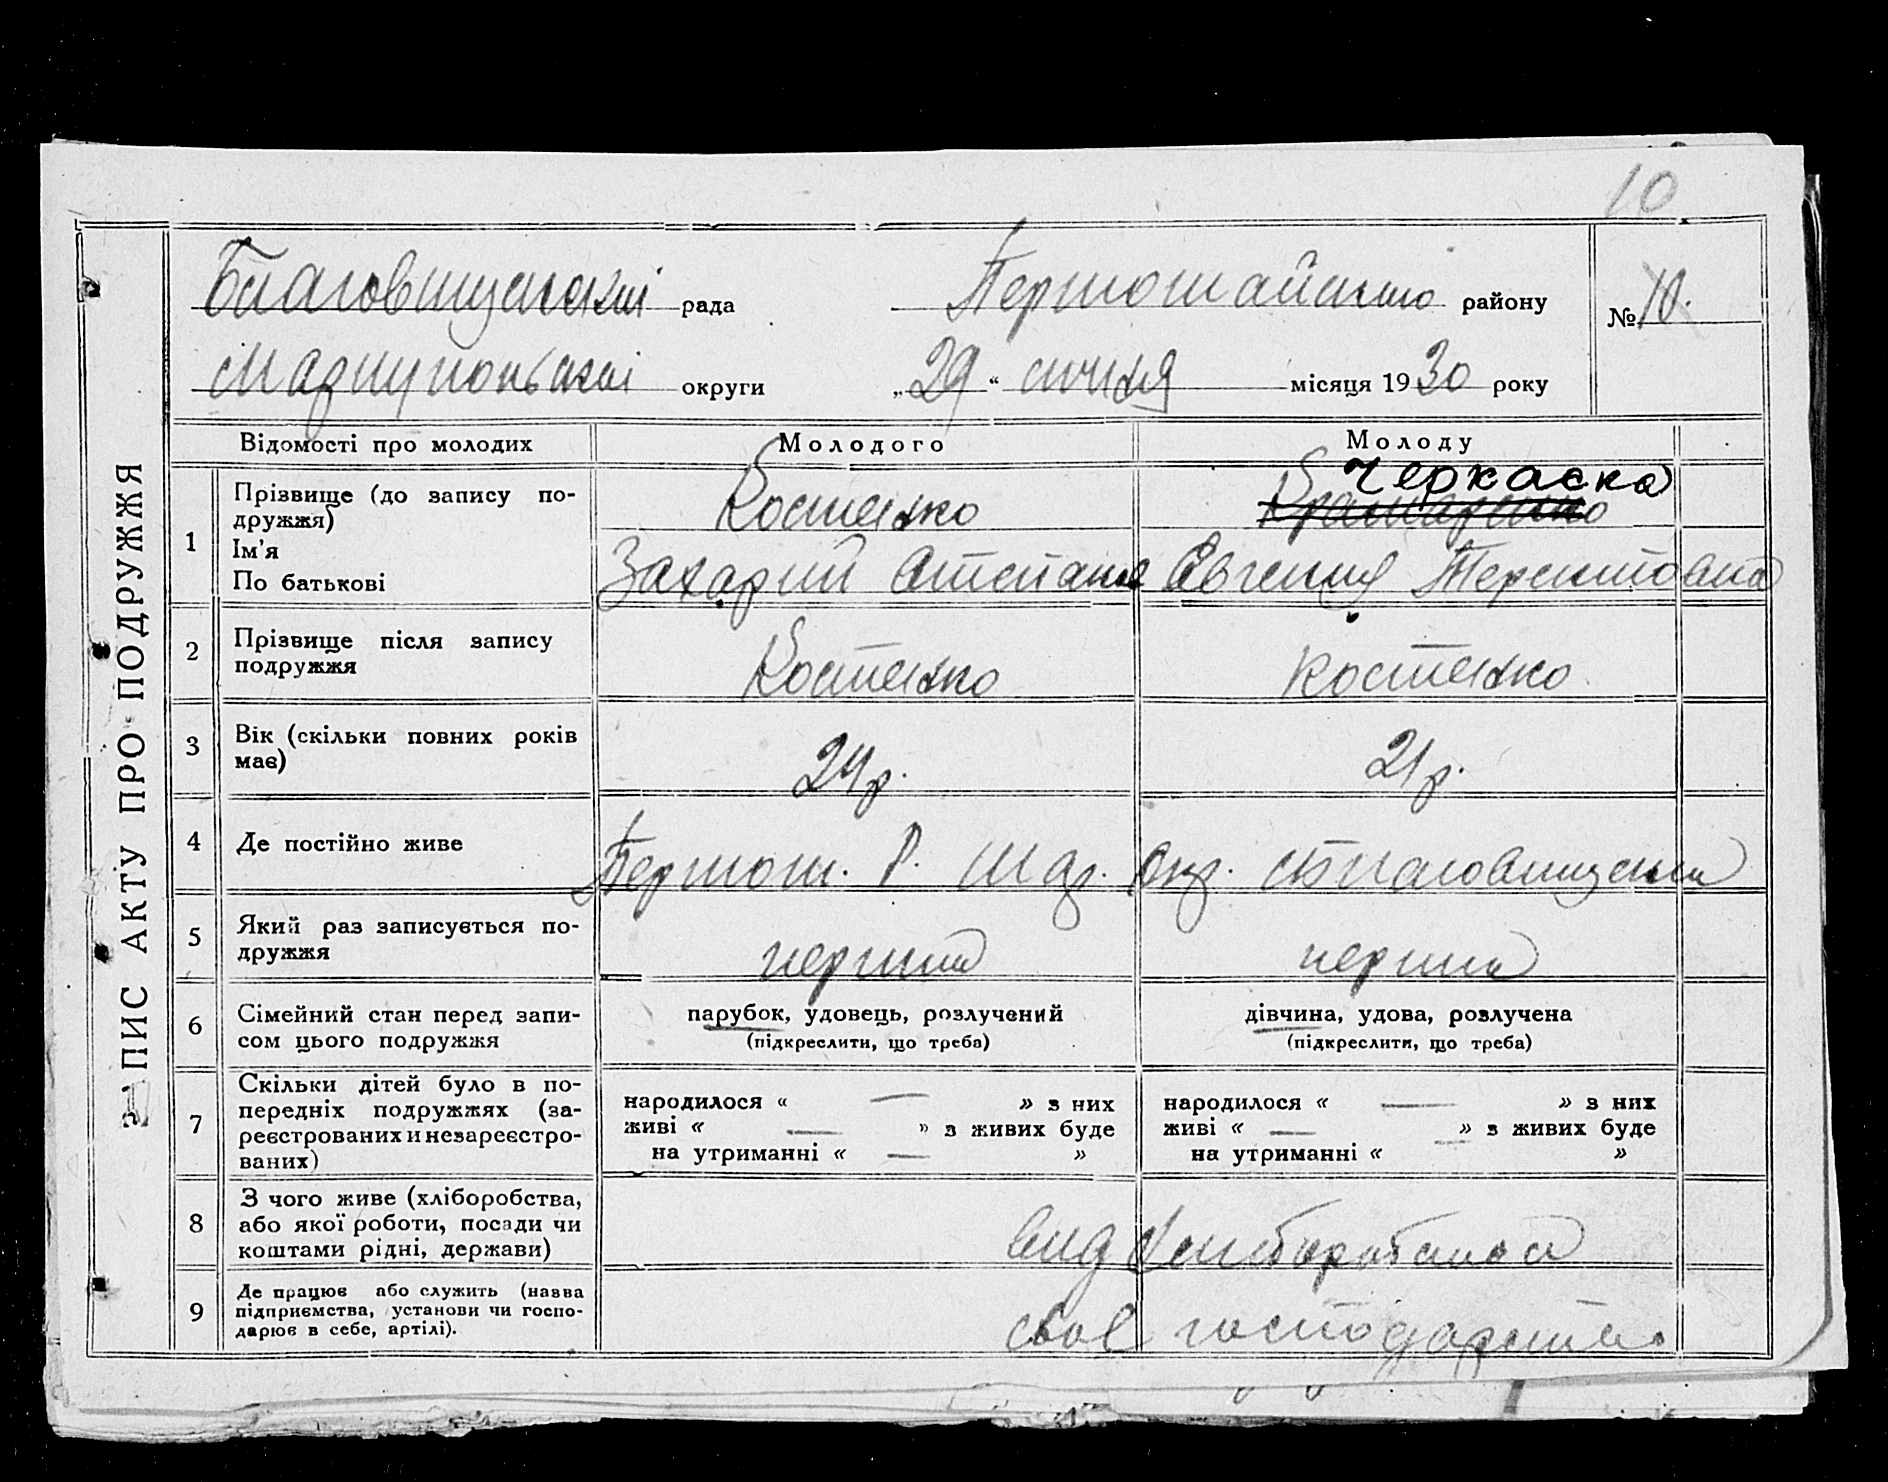 10
Благовищенскі рада Першотравайского району № 10.
Мариупольскі округи „29“ січня місяця 1930 року
ЗАПИС АКТУ ПРО ПОДРУЖЖЯ
Відомості про молодих Молодого Молоду
1 Прізвище (до запису по-
дружжя)
Ім'я
По батькові
Костенко
Захарий Степанов
Черкаска
Крамаренко
Евгения Терентовна
2 Прізвище після запису
подружжя
Костенко Костенко
3 Вік (скільки повних років
має)
24р. 21р.
4 Де постійно живе
Першом. Р. Мар. Окр. Благовищенка
5 Який раз записується по-
дружжя
перший перша
6 Сімейний стан перед запи-
сом цього подружжя
парубок, удовець, розлучений
(підкреслити, що треба)
дівчина, удова, розлучена
(підкреслити, що треба)
7 Скільки дітей було в по-
передніх подружжях (за-
реєстрованих и незареєстро-
ваних)
народилося « — » з них
живі « — » з живих буде
на утриманні « — »
народилося « — » з них
живі « — » з живих буде
на утриманні « — »
8 З чого живе (хліборобства,
або якої роботи, посади чи
коштами рідні, держави)
вид хлиборобства
9 Де працює або служить (назва
підприємства, установи чи госпо-
дарює в себе, артілі).
своє господарство